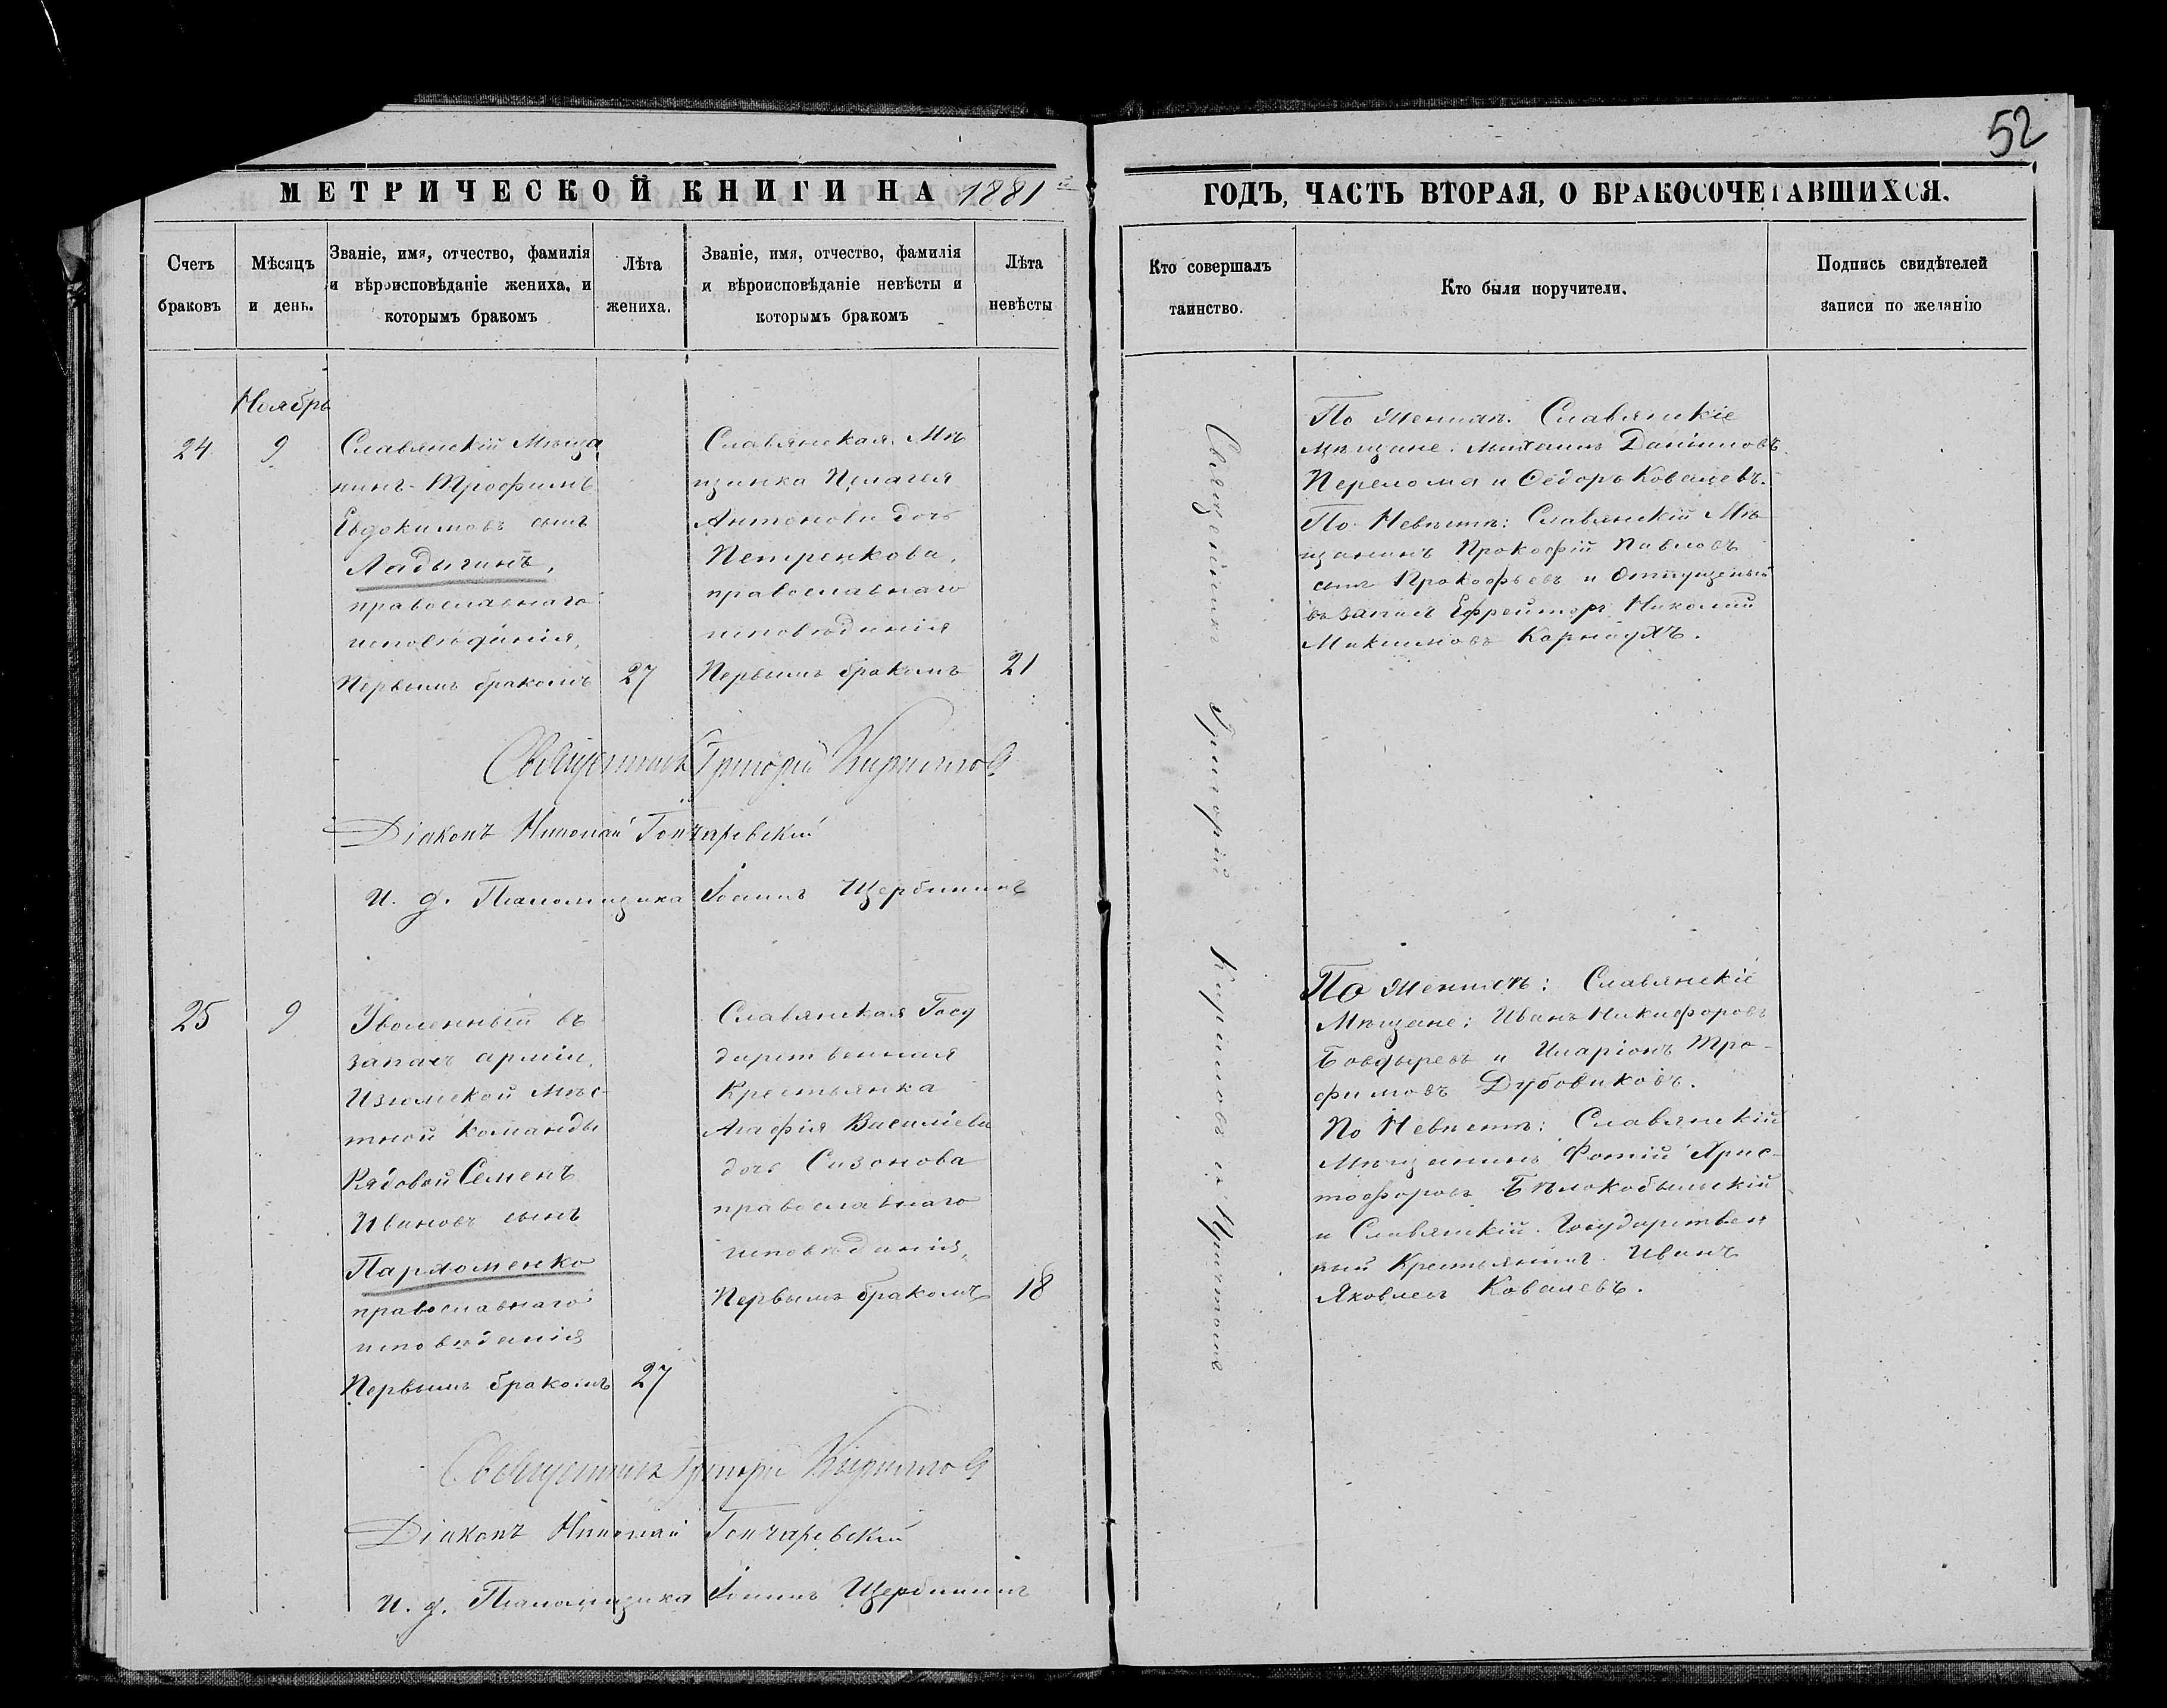 52
МЕТРИЧЕСКОЙ КНИГИ НА 1881
ГОДЪ, ЧАСТЬ ВТОРАЯ, О БРАКОСОЧЕТАВШИХСЯ.
Счетъ
браковъ
Мѣсяцъ
и день.
Званіе, имя, отчество, фамилія
и вѣроисповѣданіе жениха, и
которымъ бракомъ
Лѣта
жениха.
Званіе, имя, отчество, фамилія
и вѣроисповѣданіе невѣсты и
которымъ бракомъ
Лѣта
невѣсты
Кто совершалъ
таинство.
Кто были поручители.
Подпись свидѣтелей
записи по желанію
Ноябрь
24
9
Славянскій Мѣща
нинъ Трофимъ
Евдокимовъ сынъ
Ладыгинъ,
православнаго
исповѣданія,
Первымъ бракомъ
27
Славянская Мѣ
щанка Пелагея
Антонова дочь
Петренкова,
православнаго
исповѣданія
Первымъ бракомъ
21
Священникъ Григорій Кириллов
Діаконъ Николай Гончаревскій
И. д. Псаломщика Іоаннъ Щербининъ
25
9
Уволенный въ
запасъ арміи,
Изюмской Мѣс-
тной Команды
Рядовой Семенъ
Ивановъ сынъ
Пархоменко
православнаго
исповѣданія
Первымъ бракомъ
27
Славянская Госу
дарственная
Крестьянка
Агафія Василіева
дочь Сизонова
православнаго
исповѣданія,
Первымъ бракомъ
18
Священникъ Григорій Кириллов
Діаконъ Николай Гончаревскій
И. д. Псаломщика Іоаннъ Щербининъ
Священникъ Григорій Кирилловъ съ Причтомъ
По Женихѣ. Славянскіе
Мѣщане: Михаилъ Даніиловъ
Перелома и Ѳедоръ Ковалевъ.
По Невѣстѣ: Славянскій Мѣ
щанинъ Прокофій Павловъ
сынъ Прокофьевъ и Отпущеный
въ запасъ Ефрейторъ Николай
Максимовъ Карнаухъ.
По Женихѣ: Славянскіе
Мѣщане: Иванъ Никифоровъ
Бовдыревъ и Иларіонъ Тро-
фимовъ Дубовиковъ.
По Невѣстѣ: Славянскій
Мѣщанинъ Фотій Хрис-
тофоровъ Бѣлокобыльскій
и Славянскій Государствен
ный Крестьянинъ Иванъ
Яковлевъ Ковалевъ.